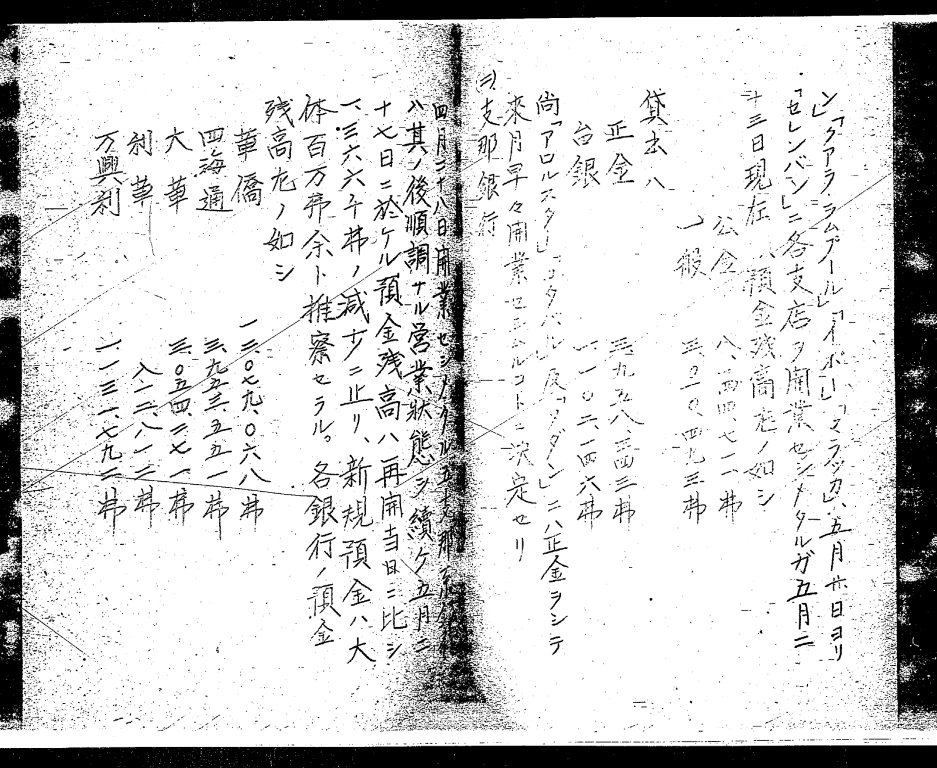 ン」「クアラ、ラムプール」「イポー」「マラッカ」ハ五月廿日ヨリ
「セレンバン」ニ各支店ヲ開業セシメタルガ五月二
十三日現在ノ預金残高左ノ如シ
公金 八、二四四、七一一弗
一般 三、〇一〇、四九三弗
貸出ハ
正金 三、九五八、二四三弗
台銀 一、一〇二、一四六弗
尚「アロルスター」「コタバル」及「メダン」ニハ正金ヲシテ
來月早々開業セシムルコトニ決定セリ
支那銀行
四月二十八日開業セシメタル支那
ハ其ノ後順調ナル営業狀態ヲ續ケ五月二
十七日ニ於ケル預金残高ハ再開当日ニ比シ
一、三六六千弗ノ減少ニ止リ、新規預金ハ大
体百万弗余ト推察セラル。各銀行ノ預金
残高左ノ如シ
華僑 一三、〇七九、〇六八弗
四海通 三、九五三、五五一弗
大華 三、〇五四、二七一弗
利華 八一二、八一二弗
万興利 一、一三一、七九二弗